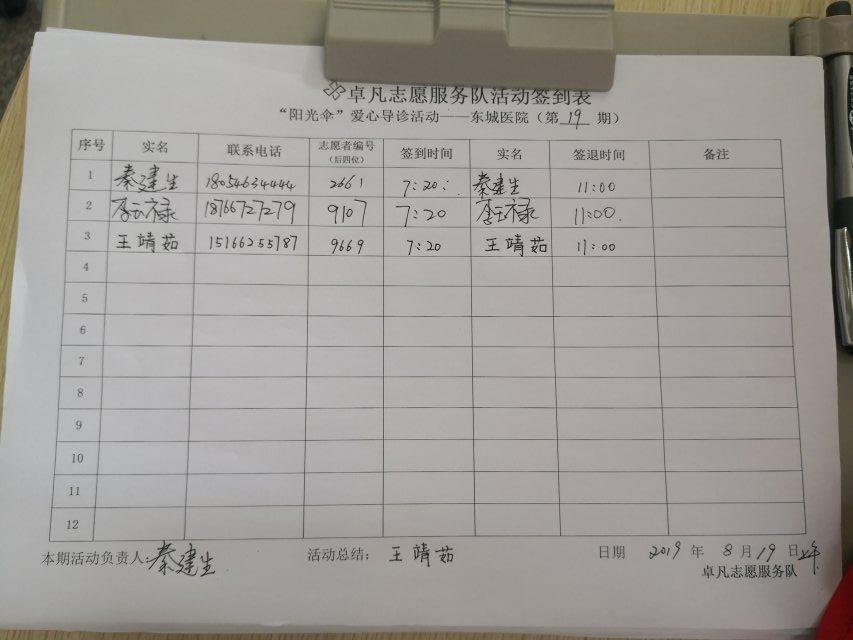 卓凡志愿服务队活动签到表
“阳光伞”爱心导诊活动——东城医院（第 19 期）
序号 实名 联系电话 志愿者编号（后四位） 签到时间 实名 签退时间 备注
1 秦建生 18054634444 2661 7:20: 秦建生 11:00
2 李云禄 18766727279 9107 7:20 李云禄 11:00.
3 王靖茹 15166255787 9669 7:20 王靖茹 11:00
4
5
6
7
8
9
10
11
12
本期活动负责人: 秦建生 活动总结： 王靖茹 日期 2019 年 8 月 19 日
卓凡志愿服务队